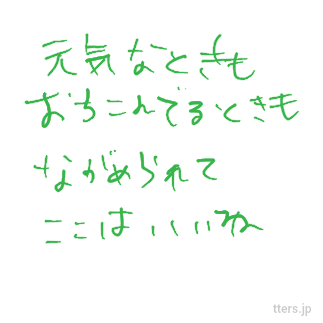 元気なときも
おちこんでるときも
ながめられて
ここはいいね
tters.jp